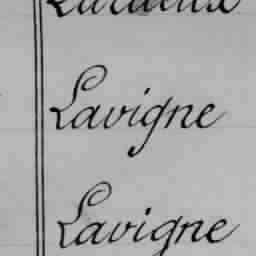 Lavigne
Lavigne